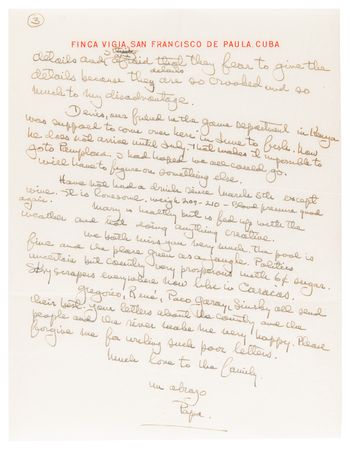 3
FINCA VIGIA, SAN FRANCISCO DE PAULA, CUBA
details and afraid that they fear to give the
details because they are so crooked and so
much to my disadvantage.
Denis, our friend in the game department in Kenya
was supposed to come over here in June to fish. Now
he does not arrive until July. That makes it impossible to
go to Pamplona. I had hoped we all could go.
Will have to figure on something else.
Have not had a drink since March 5th except
wine. It is lonesome. Weigh 208-210 - Blood pressure good
again.
Mary is healthy but is fed up with the
weather and not doing anything creative.
We both miss you very much. The pool is
fine and the place green as a jungle. Politics
uncertain but country very prosperous with 6¢ sugar.
Skyscrapers everywhere now like in Caracas.
Gregorio, René, Paco Garay, Sinsky all send
their best. Your letters about the country and the
people and the river make me very happy. Please
forgive me for writing such poor letters.
Much love to the family.
un abrazo
Papa